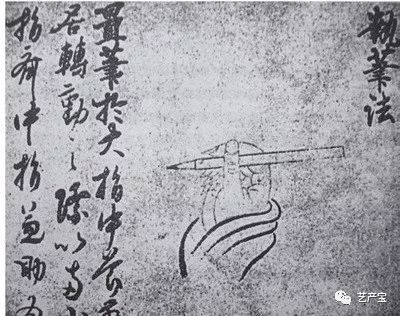 執筆法
置筆於大指中節前
居轉動之際以頭
指齊中指兼助為
艺产宝